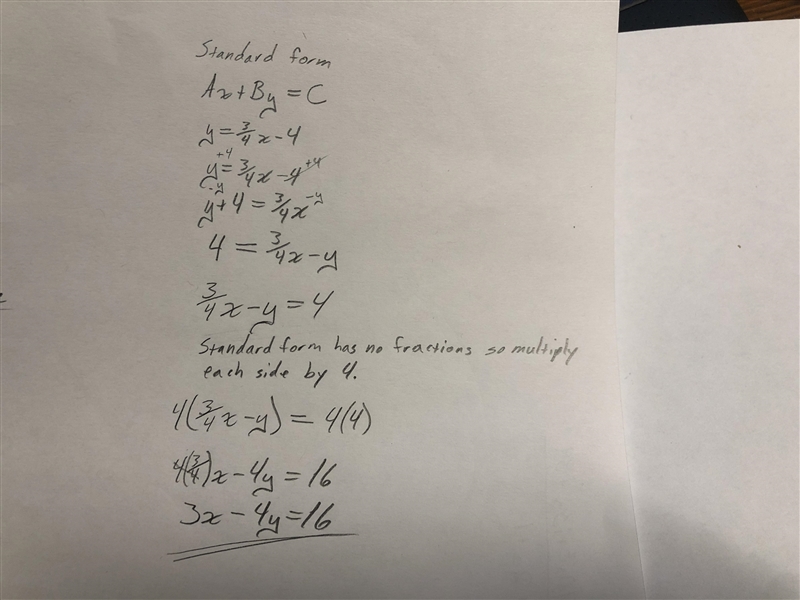 Standard form
Ax+By=C
y=3/4x-4
y+4=3/4x-4+4
-y
y+4=3/4x-y
4=3/4x-y
3/4x-y=4
Standard form has no fractions so multiply
each side by 4.
4(3/4x-y)=4(4)
4(3/4)x-4y=16
3x-4y=16